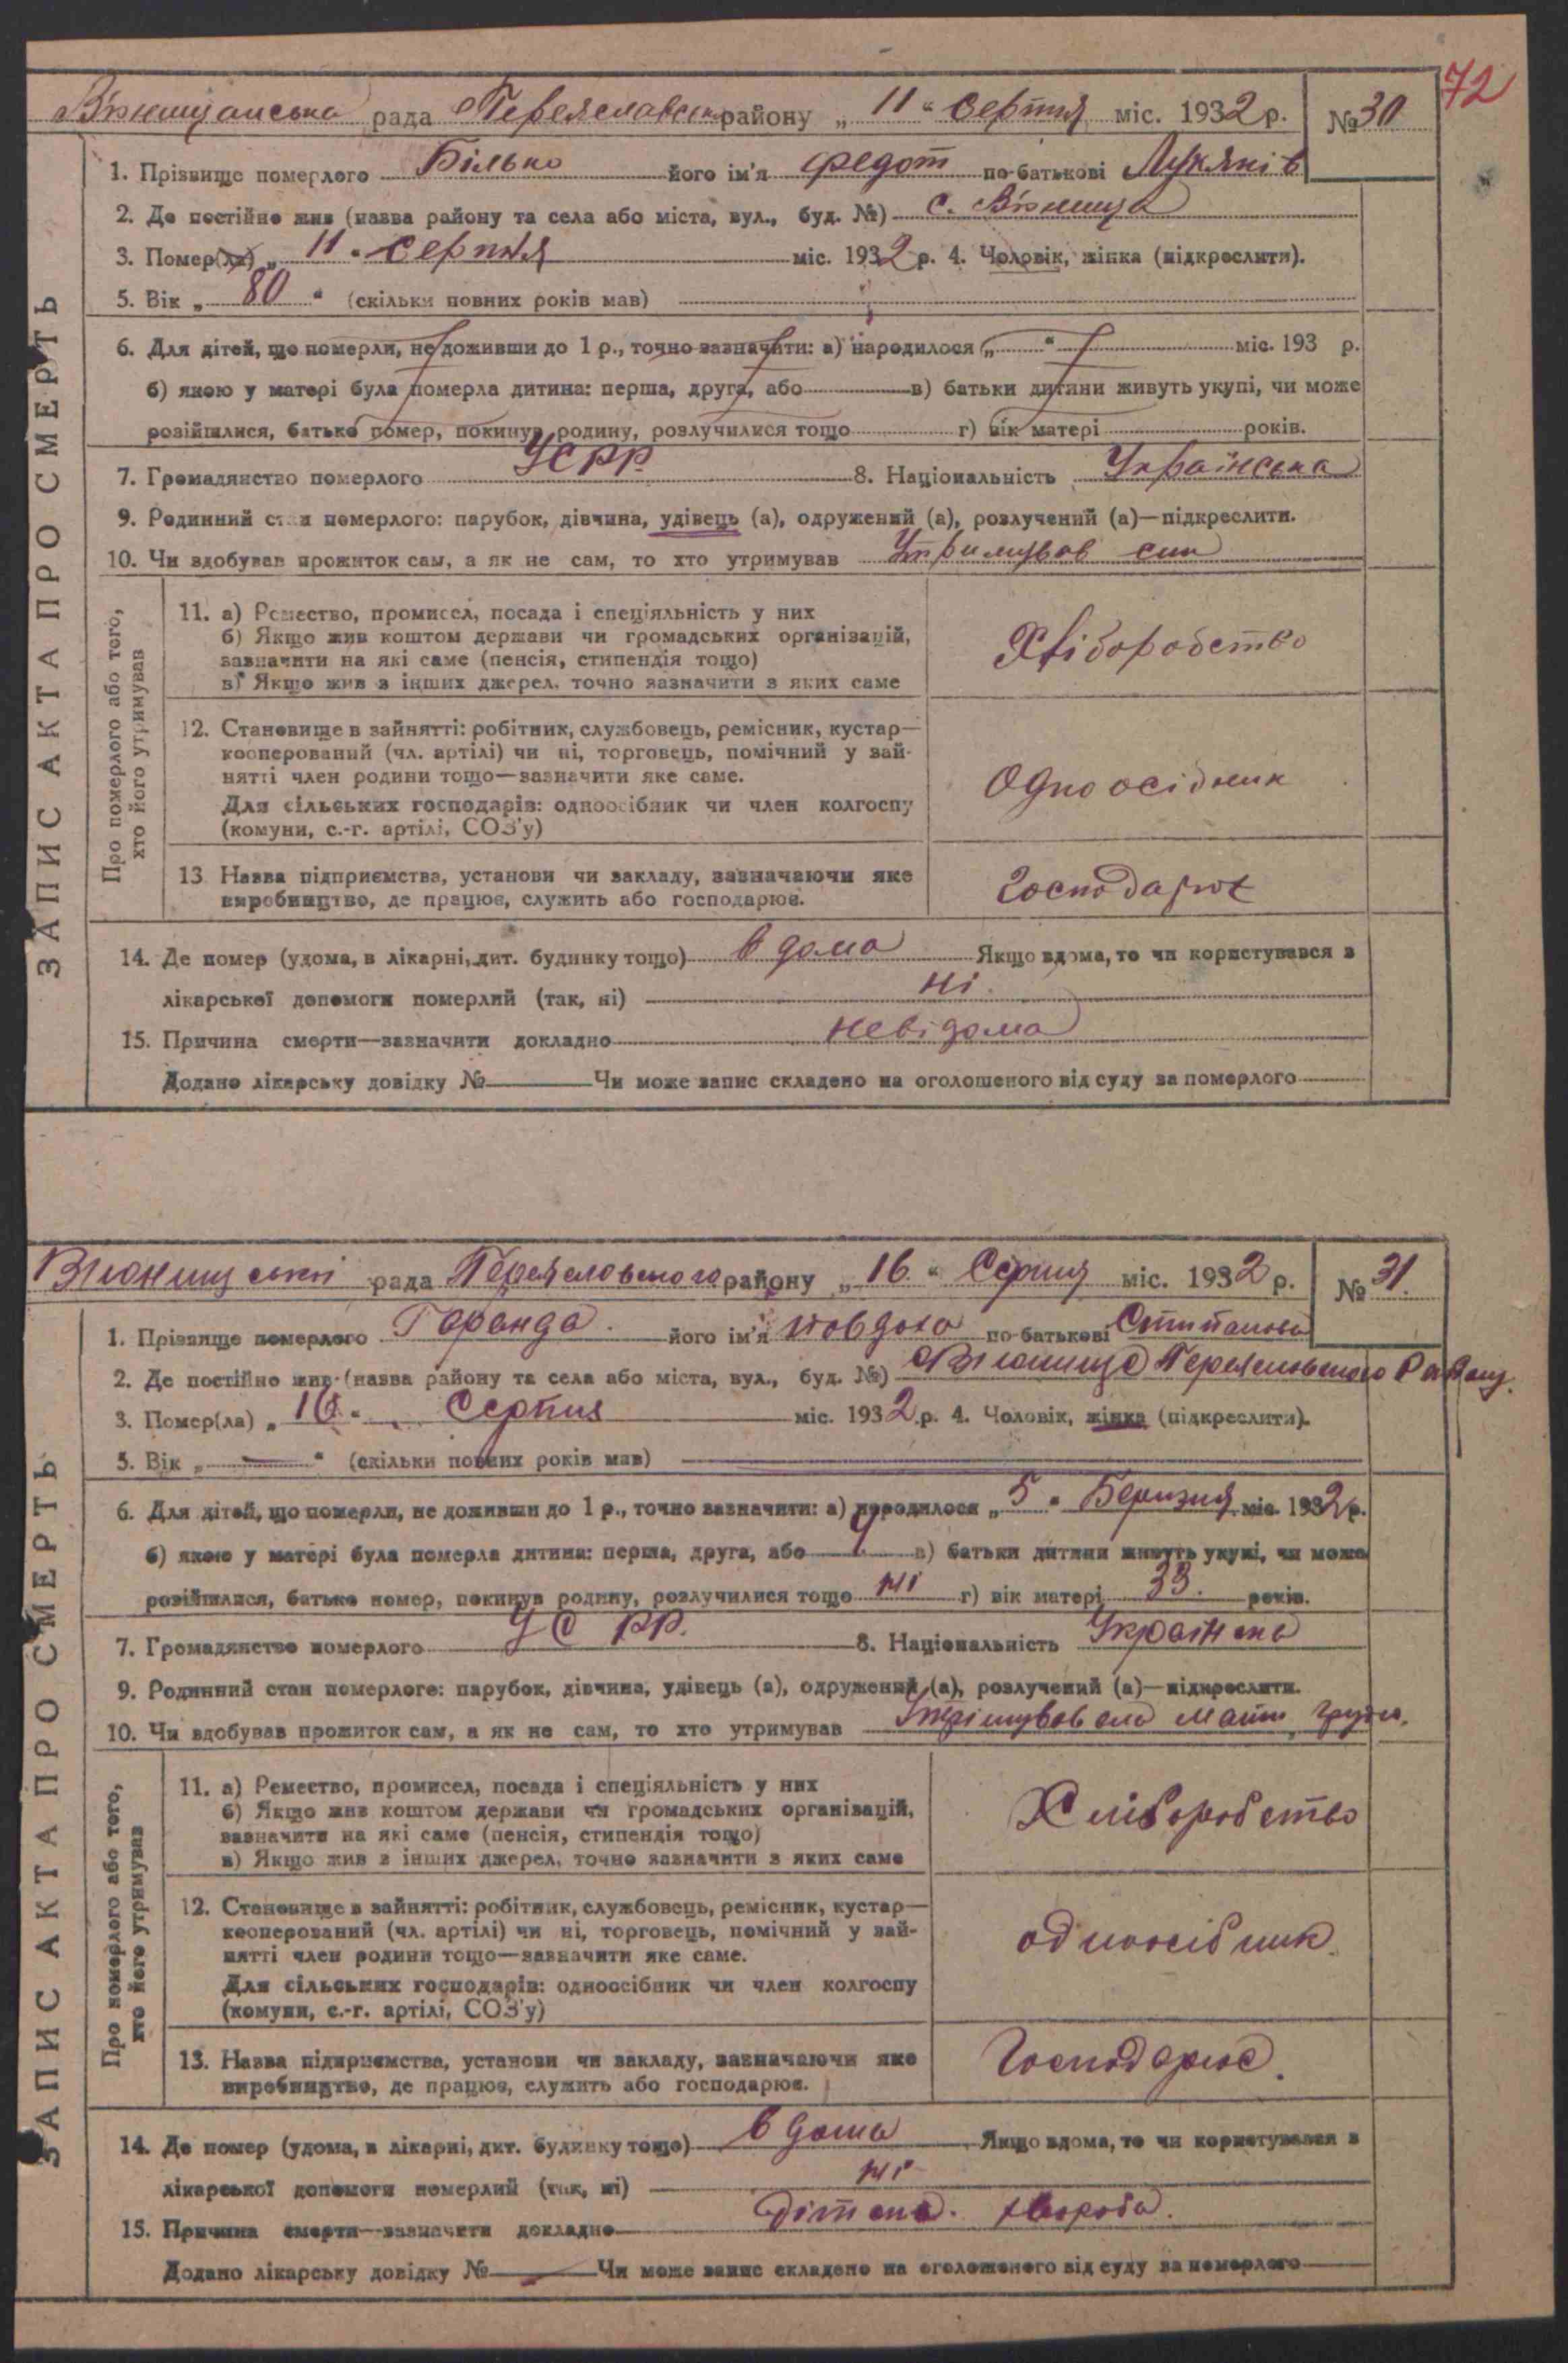 72
Вюнищанська рада Переяславськ району „ 11 “ Серпня міс. 1932 р. №30
1. Прізвище померлого Білько його ім'я Федот по-батькові Лукянів
2. Де постійно жив (назва району та села або міста, вул., буд. №) с. Вюнища
3. Помер(ла) „ 11 “ Серпня міс. 1932 р. 4. Чоловік, жінка (підкреслити).
5. Вік „ 80 “ (скільки повних років мав)
6. Для дітей, що померли, не доживши до 1 р., точно зазначити: а) народилося „ “ міс. 193 р.
б) якою у матері була померла дитина: перша, друга, або в) батьки дитини живуть укупі, чи може
розійшлися, батько помер, покинув родину, розлучилися тощо г) вік матері років.
7. Громадянство померлого УСРР 8. Національність Українська
9. Родинний стан померлого: парубок, дівчина, удівець (а), одружений (а), розлучений (а)—підкреслити.
10. Чи здобував прожиток сам, а як не сам, то хто утримував Утримував син
ЗАПИС АКТА ПРО СМЕРТЬ
Про померлого або того,
хто його утримував
11. а) Ремество, промисел, посада і спеціяльність у них
б) Якщо жив коштом держави чи громадських організацій,
зазначити на які саме (пенсія, стипендія тощо)
в) Якщо жив з інших джерел, точно зазначити з яких саме
Хліборобство
12. Становище в зайнятті: робітник, службовець, ремісник, кустар—
кооперований (чл. артілі) чи ні, торговець, помічний у зай-
нятті член родини тощо—зазначити яке саме.
Для сільських господарів: одноосібник чи член колгоспу
(комуни, с.-г. артілі, СОЗ'у)
Одноосібник
13 Назва підприємства, установи чи закладу, зазначаючи яке
виробництво, де працює, служить або господарює.
Господарює
14. Де помер (удома, в лікарні, дит. будинку тощо) в дома Якщо вдома, то чи користувався з
лікарської допомоги померлий (так, ні) ні.
15. Причина смерти—зазначити докладно невідома
Додано лікарську довідку № Чи може запис складено на оголошеного від суду за померлого
Вюнищської рада Переяславського району „ 16 “ Серпня міс. 1932 р. № 31.
1. Прізвище померлого Гаранда його ім'я Човдоха по-батькові Степанова
2. Де постійно жив (назва району та села або міста, вул., буд. №) Вюнище Переяславського Району.
3. Помер(ла) „ 16 “ Серпня міс. 1932 р. 4. Чоловік, жінка (підкреслити).
5. Вік „ — “ (скільки повних років мав)
6. Для дітей, що померли, не доживши до 1 р., точно зазначити: а) народилося „ 5 “ Березня міс. 1932 р.
б) якою у матері була померла дитина: перша, друга, або 4 в) батьки дитини живуть укупі, чи може
розійшлися, батько помер, покинув родину, розлучилися тощо ні г) вік матері 33. років.
7. Громадянство померлого УСРР. 8. Національність Українська
9. Родинний стан померлого: парубок, дівчина, удівець (а), одружений (а), розлучений (а)—підкреслити.
10. Чи здобував прожиток сам, а як не сам, то хто утримував мати
ЗАПИС АКТА ПРО СМЕРТЬ
Про померлого або того,
хто його утримував
11. а) Ремество, промисел, посада і спеціяльність у них
б) Якщо жив коштом держави чи громадських організацій,
зазначити на які саме (пенсія, стипендія тощо)
в) Якщо жив з інших джерел, точно зазначити з яких саме
Хліборобство
12. Становище в зайнятті: робітник, службовець, ремісник, кустар—
кооперований (чл. артілі) чи ні, торговець, помічний у зай-
нятті член родини тощо—зазначити яке саме.
Для сільських господарів: одноосібник чи член колгоспу
(комуни, с.-г. артілі, СОЗ'у)
одноосібник.
13. Назва підприємства, установи чи закладу, зазначаючи яке
виробництво, де працює, служить або господарює.
Господарює.
14. Де помер (удома, в лікарні, дит. будинку тощо) в дома Якщо вдома, то чи користувався з
лікарської допомоги померлий (так, ні) ні
15. Причина смерти—зазначити докладно Дітяча. хвороба.
Додано лікарську довідку № Чи може запис складено на оголошеного від суду за померлого